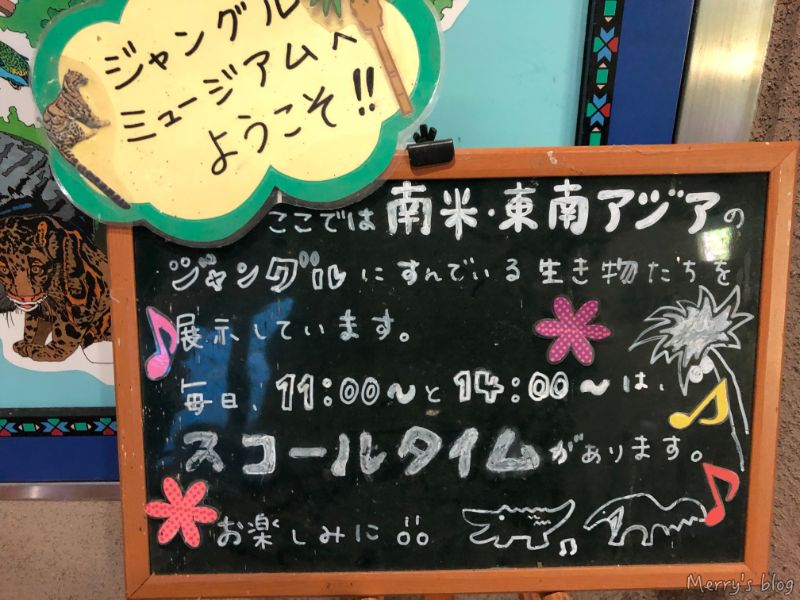 ジャングル
ミュージアムへ
ようこそ!!
ここでは南米・東南アジアの
ジャングルにすんでいる生き物たちを
展示しています。
毎日、11:00〜と14:00〜は、
スコールタイムがあります。
お楽しみに
Merry's blog